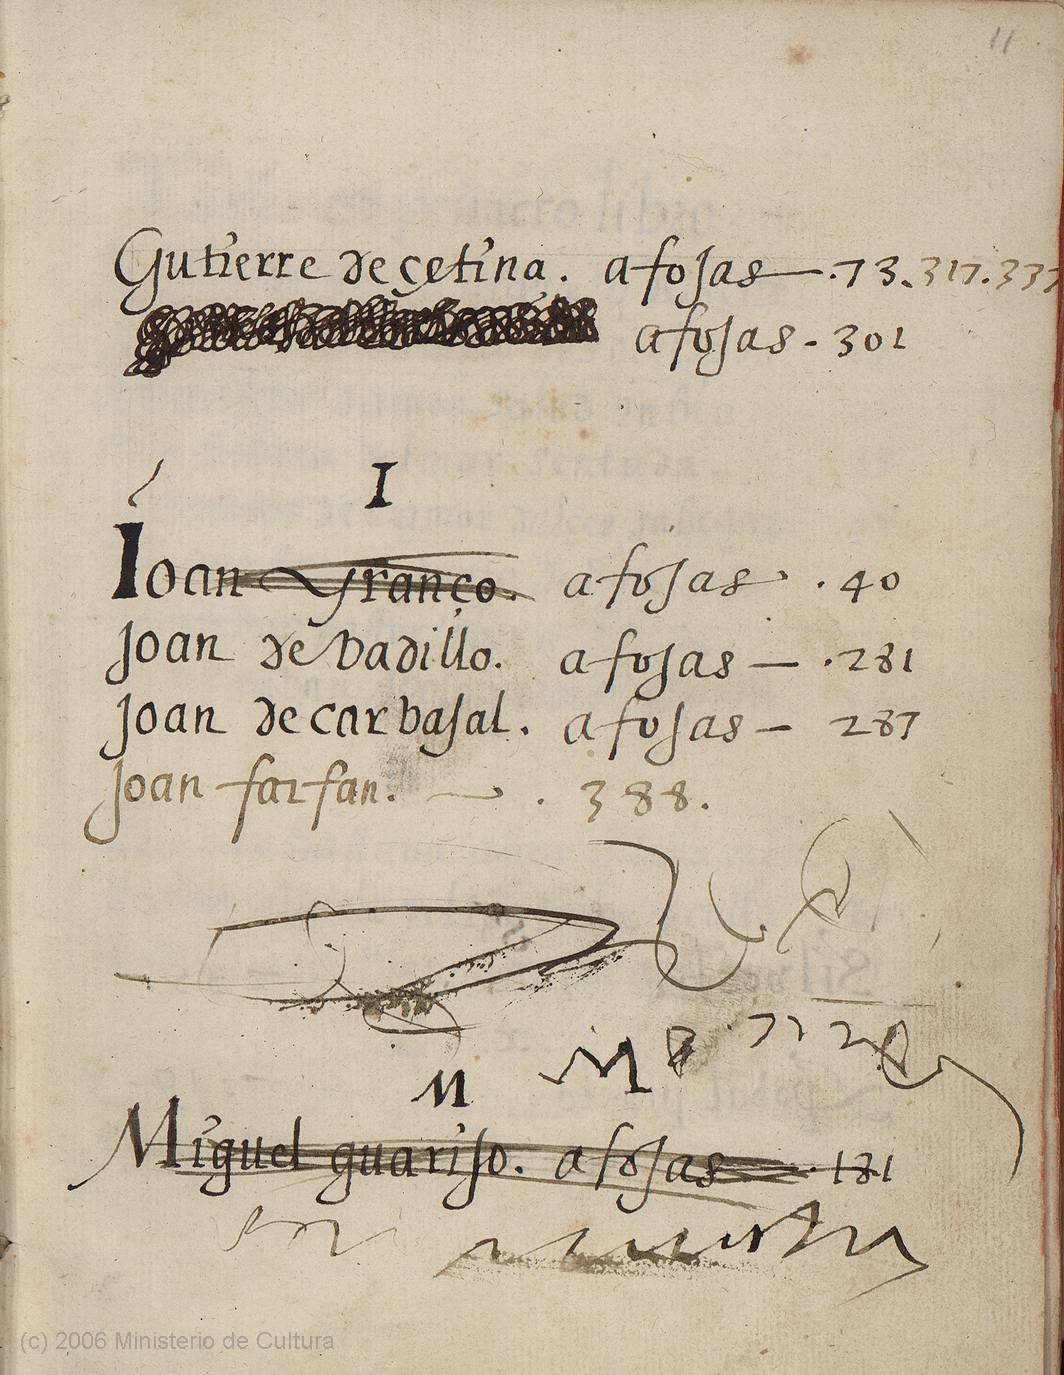 11
Gutierre de çetina. afojas — .73.317.337
afojas - 301
I
Joan franço. afojas .40
Joan de badillo. afojas — .281
Joan de carbajal. afojas — 287
Joan farfan. . 388.
M
Miguel guarijo. afojas 181
(c) 2006 Ministerio de Cultura